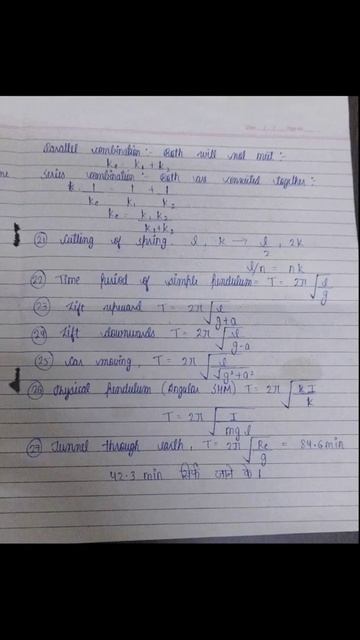 Parallel combination :- Both will not meet :-
ke = k1 + k2
Series combination :- Both are connected together :-
1 1 + 1
ke k1 k2
ke = k1 k2
k1+k2
(21) Cutting of spring. l, k → l/2, 2k
l/n = nk
(22) Time period of simple pendulum = T = 2π √l/g
(23) Lift upward T = 2π √l/g+a
(24) Lift downwards T = 2π √l/g-a
(25) Car moving, T = 2π √l/√g²+a²
(26) Physical pendulum (Angular SHM) T = 2π √I/k
T = 2π √I/mgl
(27) Tunnel through earth, T = 2π √Re/g = 84.6 min
42.3 min सिर्फ जाने के ।